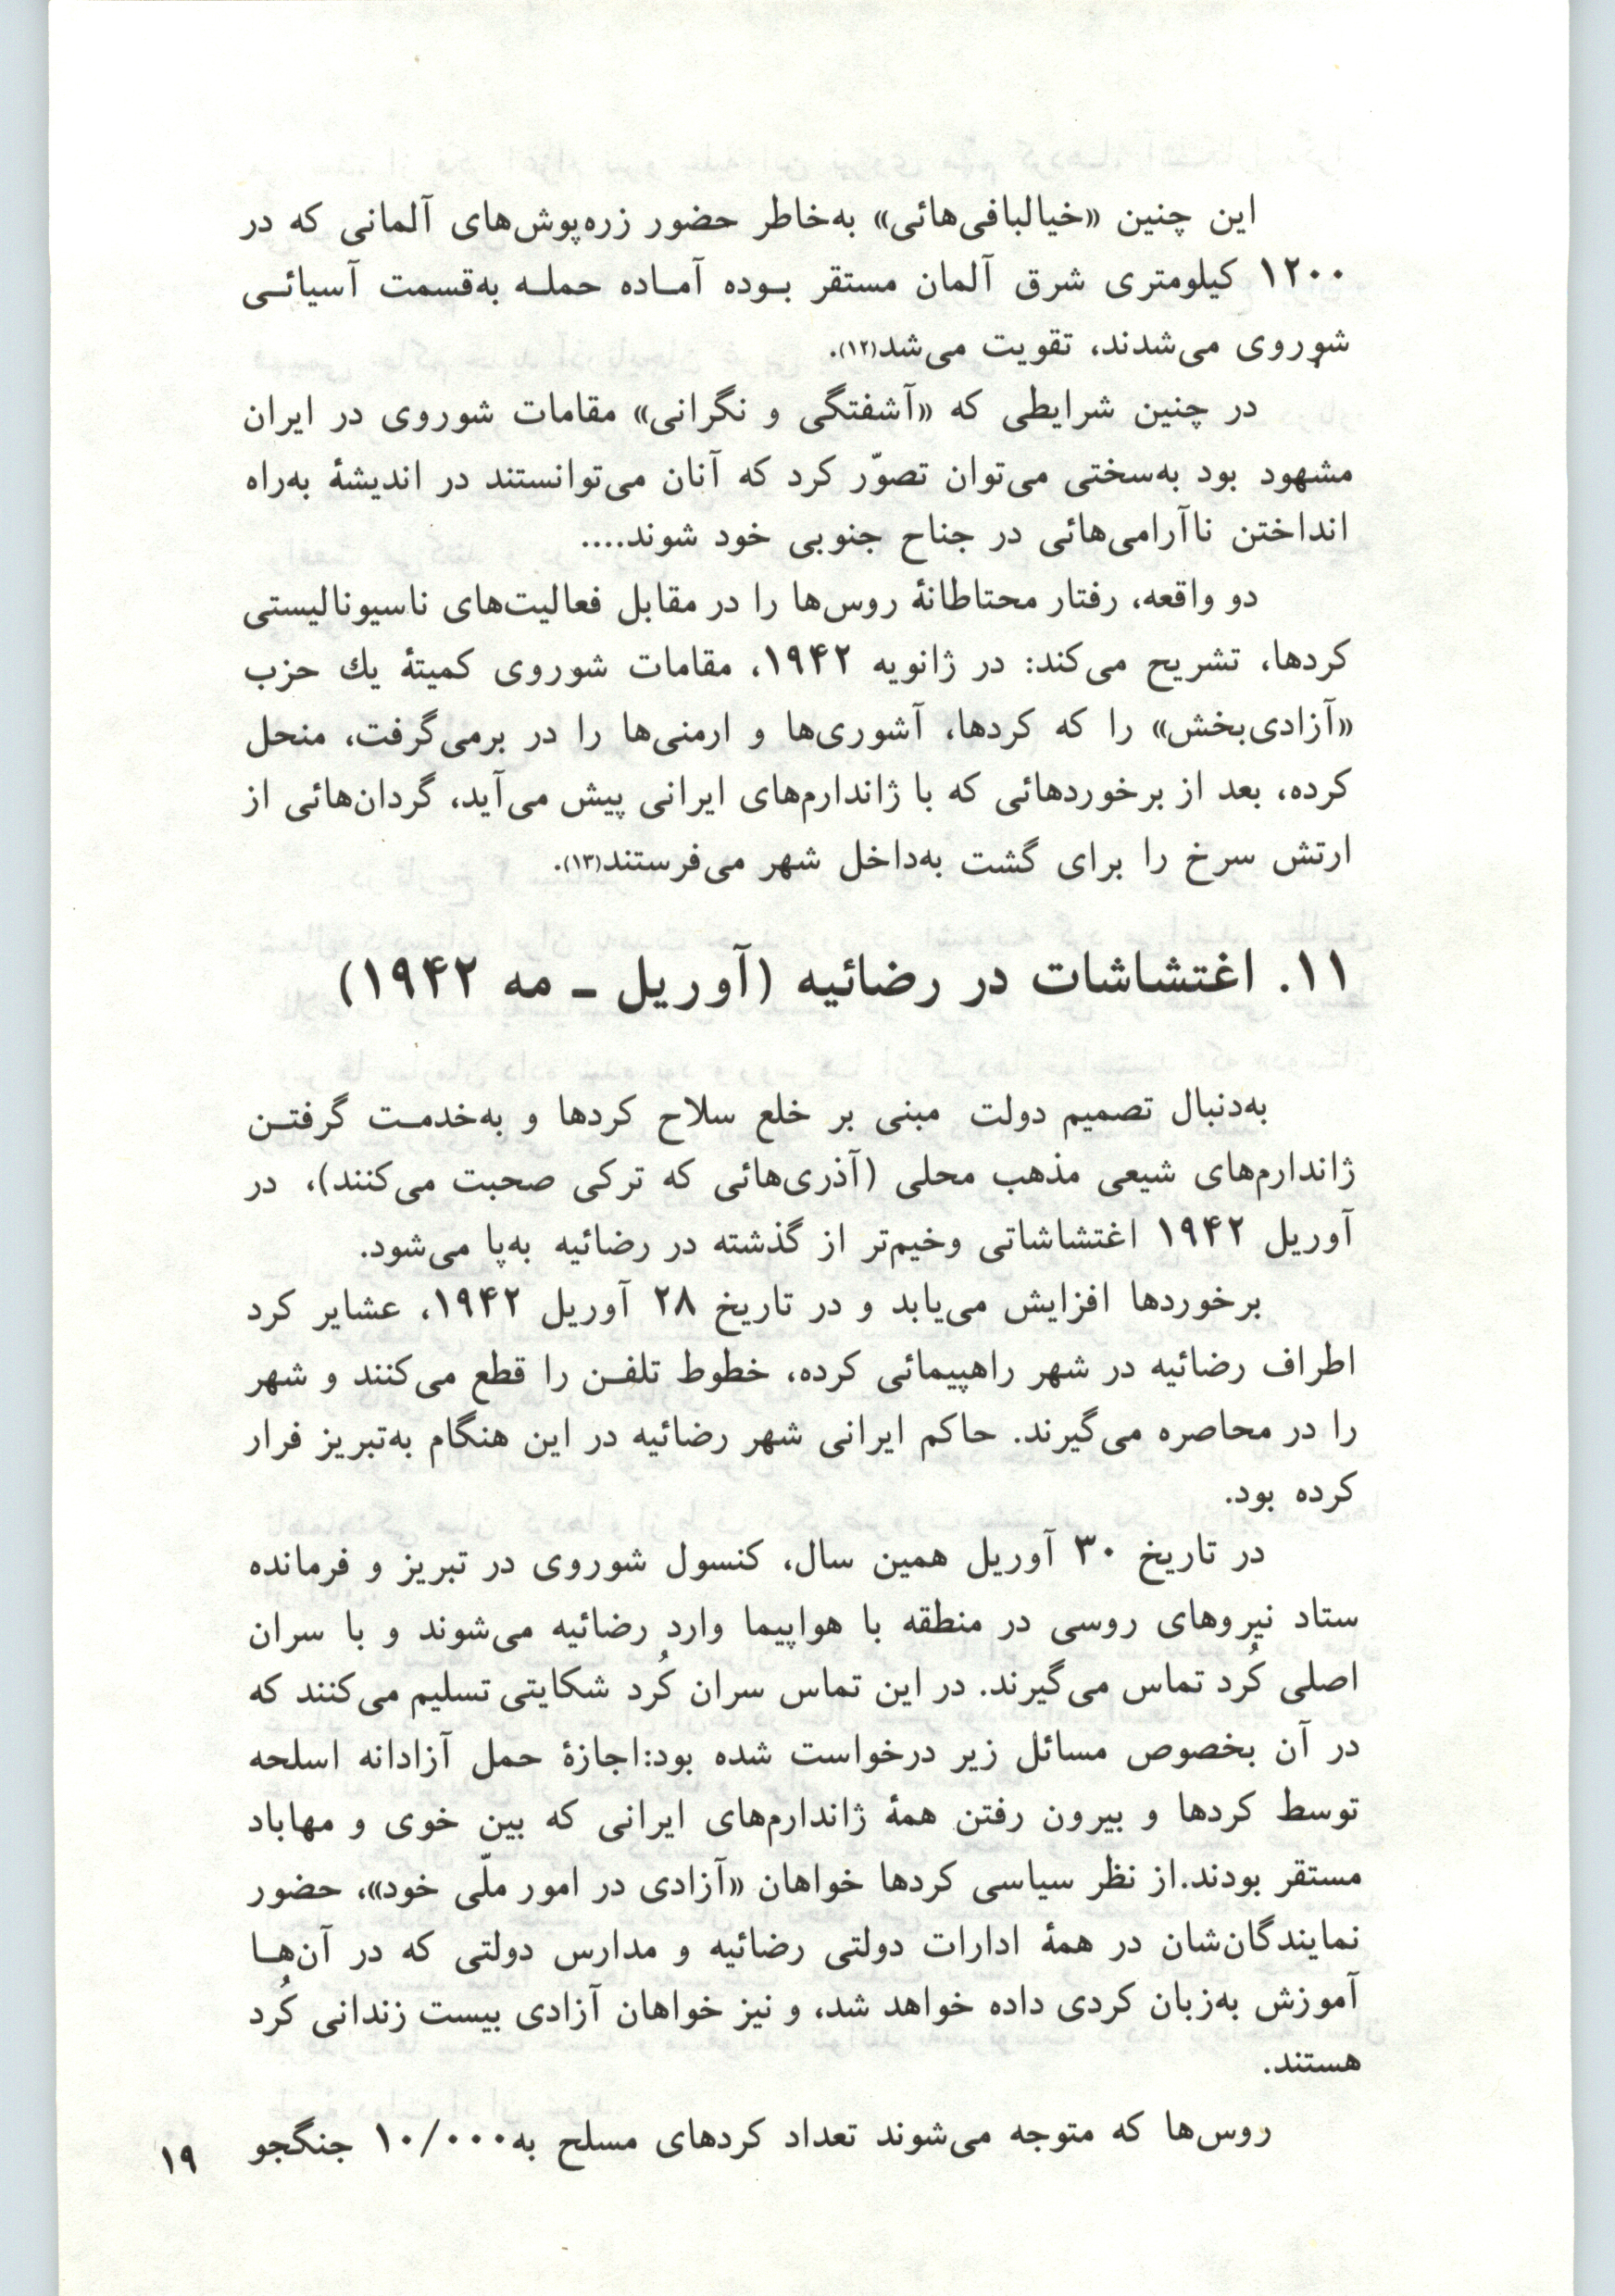 این چنین «خیالبافی‌هائی» به‌خاطر حضور زره‌پوش‌های آلمانی که در
۱۲۰۰ کیلومتری شرق آلمان مستقر بـوده آمـاده حملـه به‌قسمت آسیائـی
شوروی می‌شدند، تقویت می‌شد(۱۲).
در چنین شرایطی که «آشفتگی و نگرانی» مقامات شوروی در ایران
مشهود بود به‌سختی می‌توان تصوّر کرد که آنان می‌توانستند در اندیشهٔ به‌راه
انداختن ناآرامی‌هائی در جناح جنوبی خود شوند....
دو واقعه، رفتار محتاطانهٔ روس‌ها را در مقابل فعالیت‌های ناسیونالیستی
کردها، تشریح می‌کند: در ژانویه ۱۹۴۲، مقامات شوروی کمیتهٔ یك حزب
«آزادی‌بخش» را که کردها، آشوری‌ها و ارمنی‌ها را در برمی‌گرفت، منحل
کرده، بعد از برخوردهائی که با ژاندارم‌های ایرانی پیش می‌آید، گردان‌هائی از
ارتش سرخ را برای گشت به‌داخل شهر می‌فرستند(۱۳).
۱۱. اغتشاشات در رضائیه (آوریل ـ مه ۱۹۴۲)
به‌دنبال تصمیم دولت مبنی بر خلع سلاح کردها و به‌خدمـت گرفتـن
ژاندارم‌های شیعی مذهب محلی (آذری‌هائی که ترکی صحبت می‌کنند)، در
آوریل ۱۹۴۲ اغتشاشاتی وخیم‌تر از گذشته در رضائیه به‌پا می‌شود.
برخوردها افزایش می‌یابد و در تاریخ ۲۸ آوریل ۱۹۴۲، عشایر کرد
اطراف رضائیه در شهر راهپیمائی کرده، خطوط تلفـن را قطع می‌کنند و شهر
را در محاصره می‌گیرند. حاکم ایرانی شهر رضائیه در این هنگام به‌تبریز فرار
کرده بود.
در تاریخ ۳۰ آوریل همین سال، کنسول شوروی در تبریز و فرمانده
ستاد نیروهای روسی در منطقه با هواپیما وارد رضائیه می‌شوند و با سران
اصلی کُرد تماس می‌گیرند. در این تماس سران کُرد شکایتی تسلیم می‌کنند که
در آن بخصوص مسائل زیر درخواست شده بود:اجازهٔ حمل آزادانه اسلحه
توسط کردها و بیرون رفتن همهٔ ژاندارم‌های ایرانی که بین خوی و مهاباد
مستقر بودند.از نظر سیاسی کردها خواهان «آزادی در امور ملّی خود»، حضور
نمایندگان‌شان در همهٔ ادارات دولتی رضائیه و مدارس دولتی که در آن‌هـا
آموزش به‌زبان کردی داده خواهد شد، و نیز خواهان آزادی بیست زندانی کُرد
هستند.
روس‌ها که متوجه می‌شوند تعداد کردهای مسلح به۱۰/۰۰۰ جنگجو
۱۹